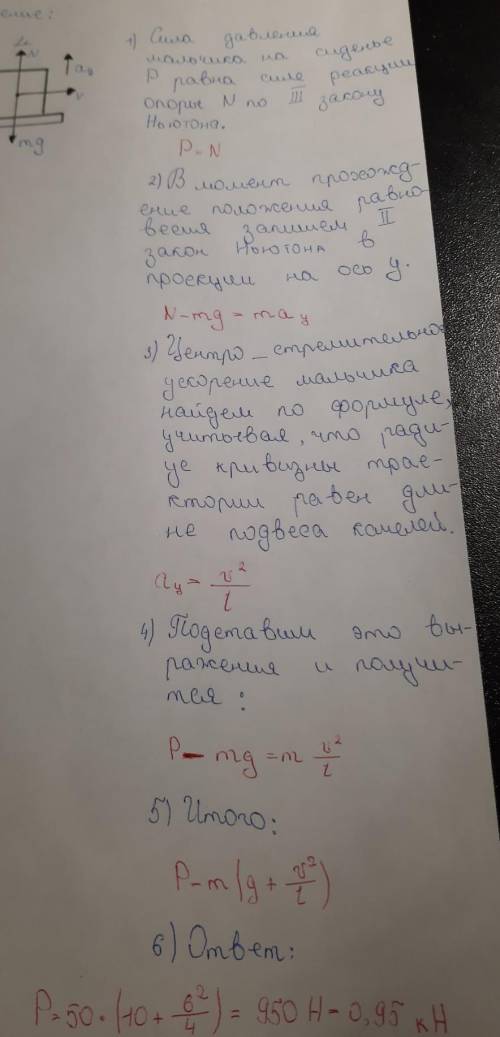 ение:
N
aц
v
mg
1) Сила давления
мальчика на сиденье
P равна силе реакции
опоры N по III закону
Ньютона.
P = N
2) В момент прохожд-
ение положения равно-
весия запишем II
закон Ньютона в
проекции на ось y.
N - mg = maц
3) Центро - стремительное
ускорение мальчика
найдем по формуле,
учитывая, что ради-
ус кривизны трае-
ктории равен дли-
не подвеса качелей.
aц = v²/l
4) Подставим это вы-
ражения и получи-
тся:
P - mg = m v²/l
5) Итого:
P = m(g + v²/l)
6) Ответ:
P = 50 · (10 + 6²/4) = 950 Н = 0,95 кН